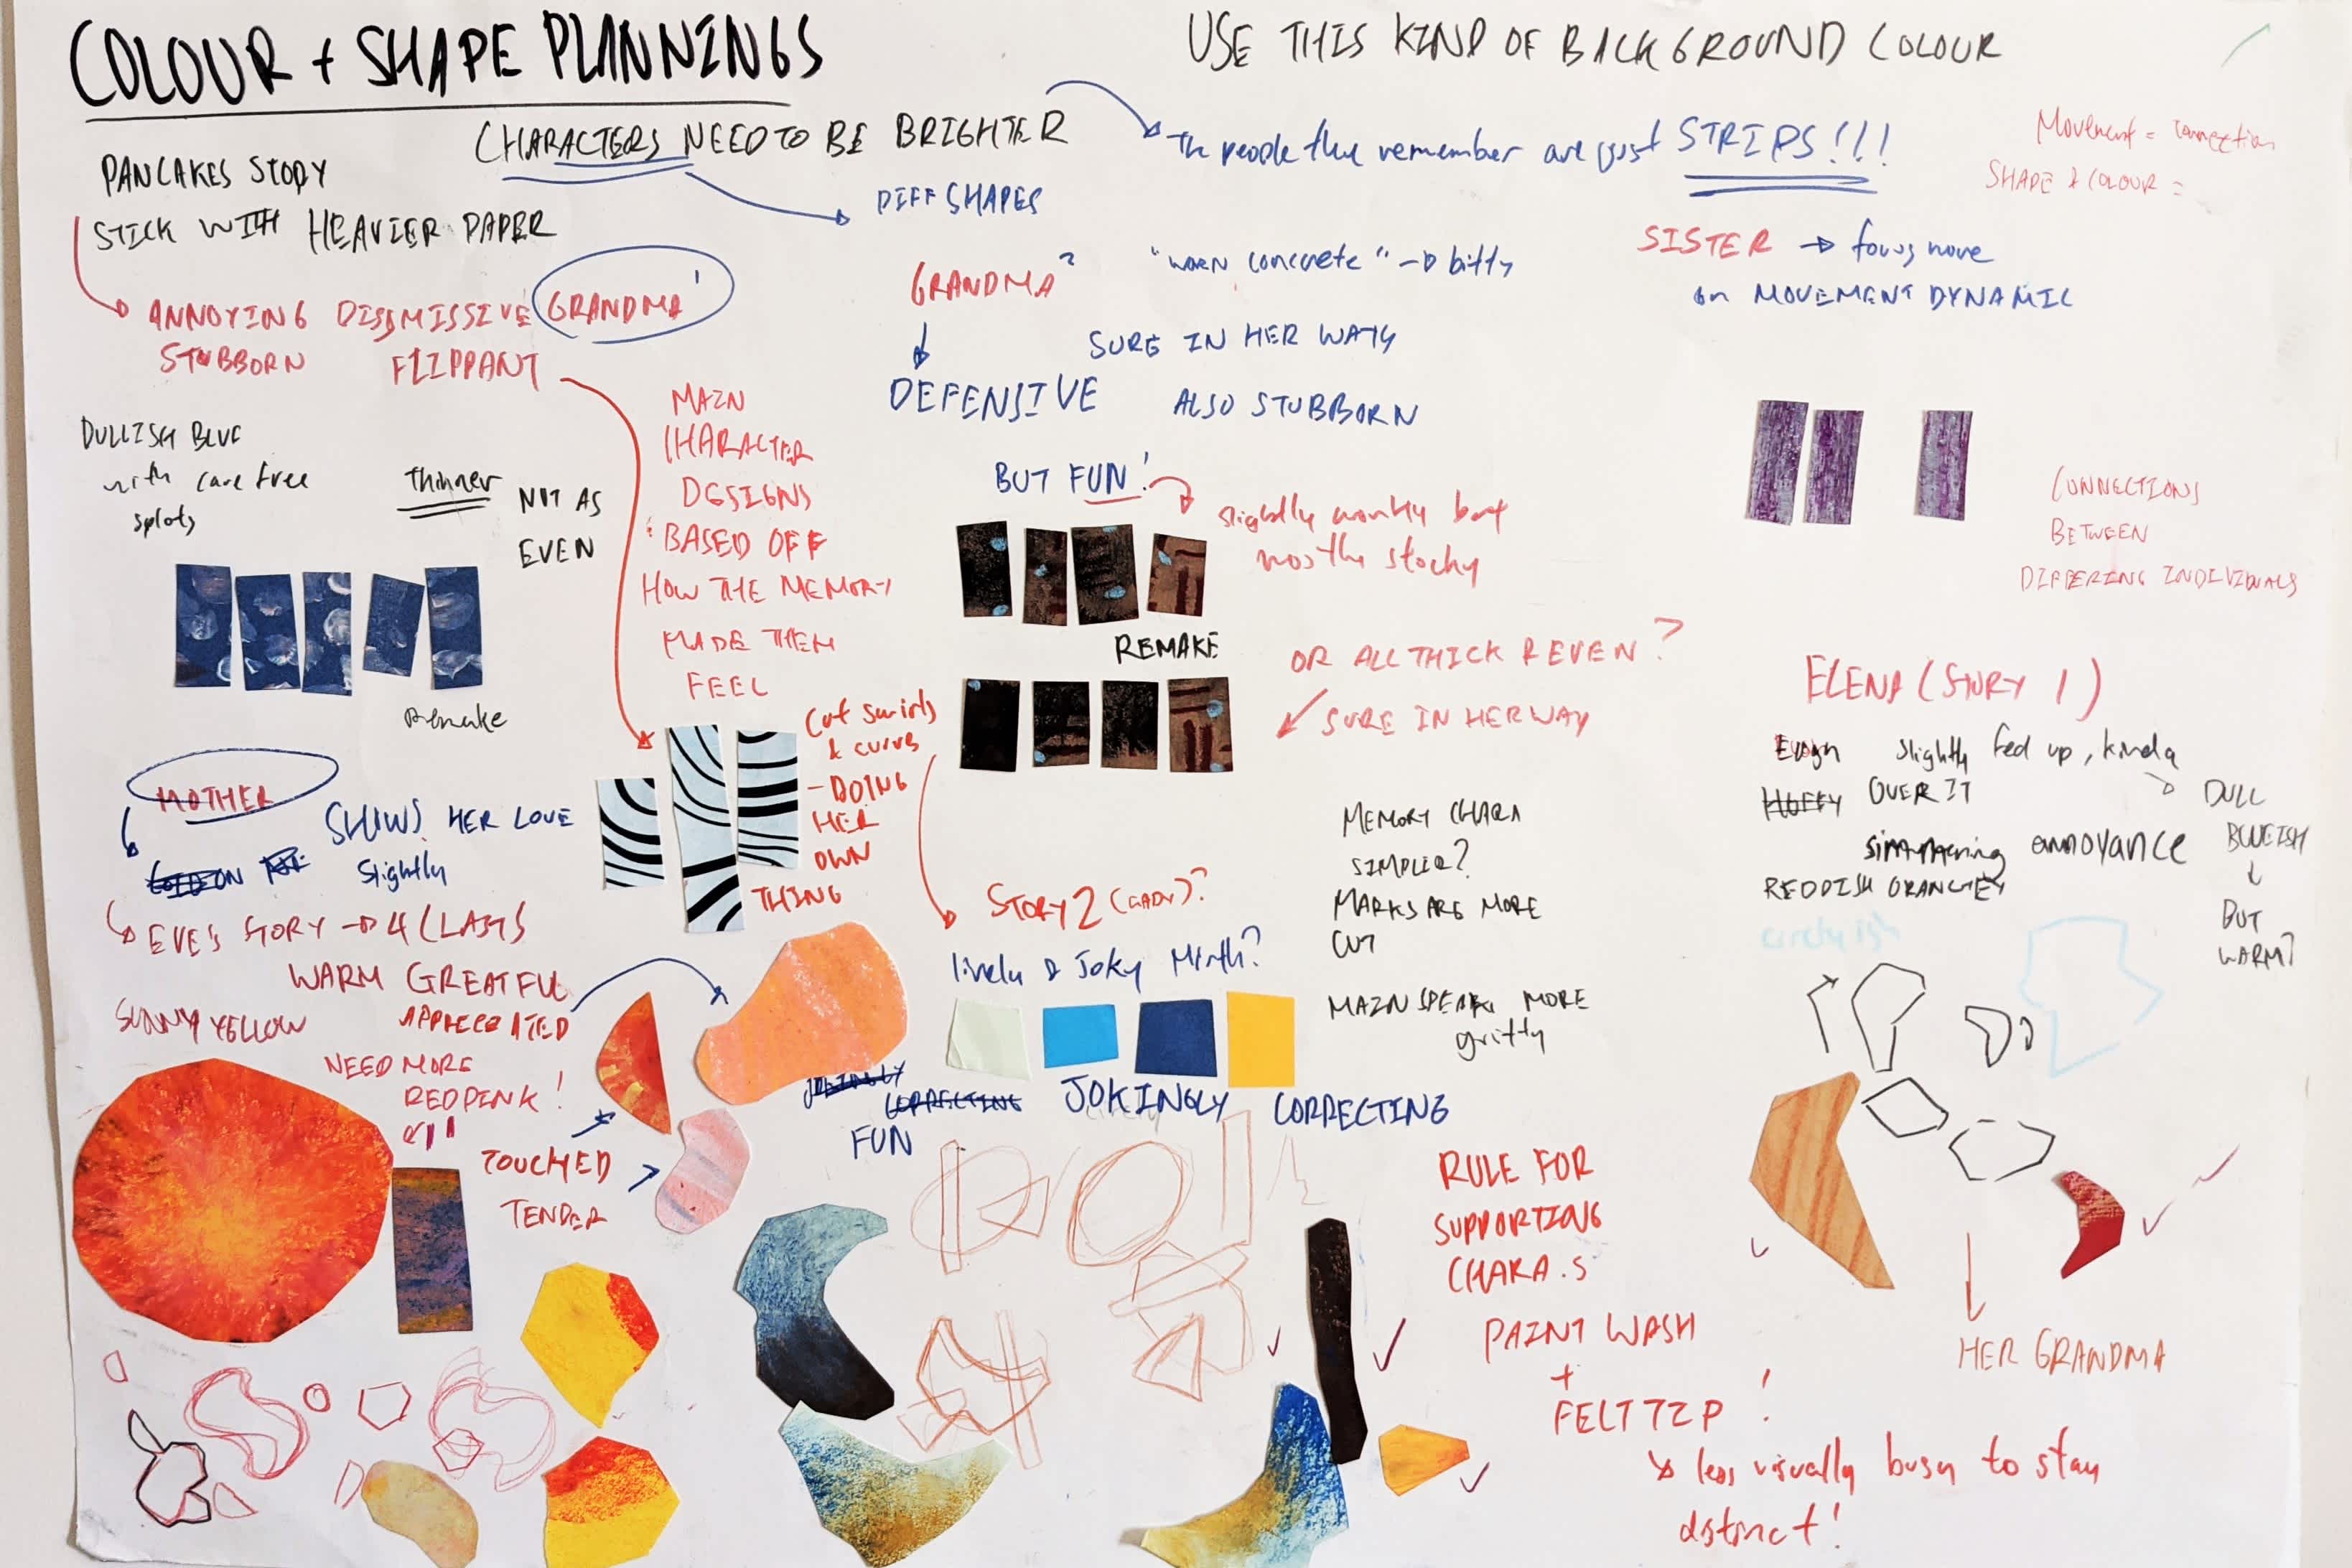 COLOUR + SHAPE PLANNINGS
USE THIS KIND OF BACKGROUND COLOUR
CHARACTERS NEED TO BE BRIGHTER
The people they remember are just STRIPS!!!
Movement = connection
SHAPE & COLOUR =
PANCAKES STORY
STICK WITH HEAVIER PAPER
DIFF SHAPES
ANNOYING DISSMISSIVE GRANDMA 1
STUBBORN FLIPPANT
GRANDMA 2
"worn concrete" → bitty
SURE IN HER WAYS
DEFENSIVE ALSO STUBBORN
BUT FUN!
slightly wonky but
mostly stocky
SISTER → focus more
on MOVEMENT DYNAMIC
DULLISH BLUE
with care free
splots
Thinner
NOT AS
EVEN
Remake
MAIN
CHARACTER
DESIGNS
BASED OFF
HOW THE MEMORY
MADE THEM
FEEL
REMAKE
OR ALL THICK & EVEN?
SURE IN HER WAY
CONNECTIONS
BETWEEN
DIFFERING INDIVIDUALS
Cut swirls
& curves
- DOING
HER
OWN
THING
MOTHER
SHOWS HER LOVE
slightly
EVE'S STORY → 4 (LAST)
WARM GREATFUL
APPRECIATED
SUNNY YELLOW
NEED MORE
RED PINK!
TOUCHED
TENDER
STORY 2 (GABY)?
lively & Joky Mirth?
JOKINGLY
CORRECTING
JOKINGLY CORRECTING
FUN
MEMORY CHARA
SIMPLER?
MARKS ARE MORE
CUT
MAIN SPEAK MORE
gritty
RULE FOR
SUPPORTING
CHARA.S
PAINT WASH
+
FELT TIP!
↘ less visually busy to stay
distinct!
ELENA (STORY 1)
slightly fed up, kinda
HUFFY OVER IT
simmering annoyance
REDDISH ORANGEY
DULL
BLUEISH
↓
BUT
WARM?
circly ish
HER GRANDMA